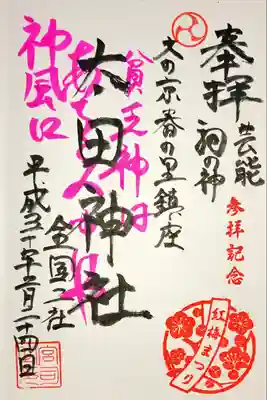 奉拝
芸能
祖の神
参拝記念
文の京春の里鎮座
貧乏神
太田神社
全国二社
平成三十年二月二十四日
紅梅まつり